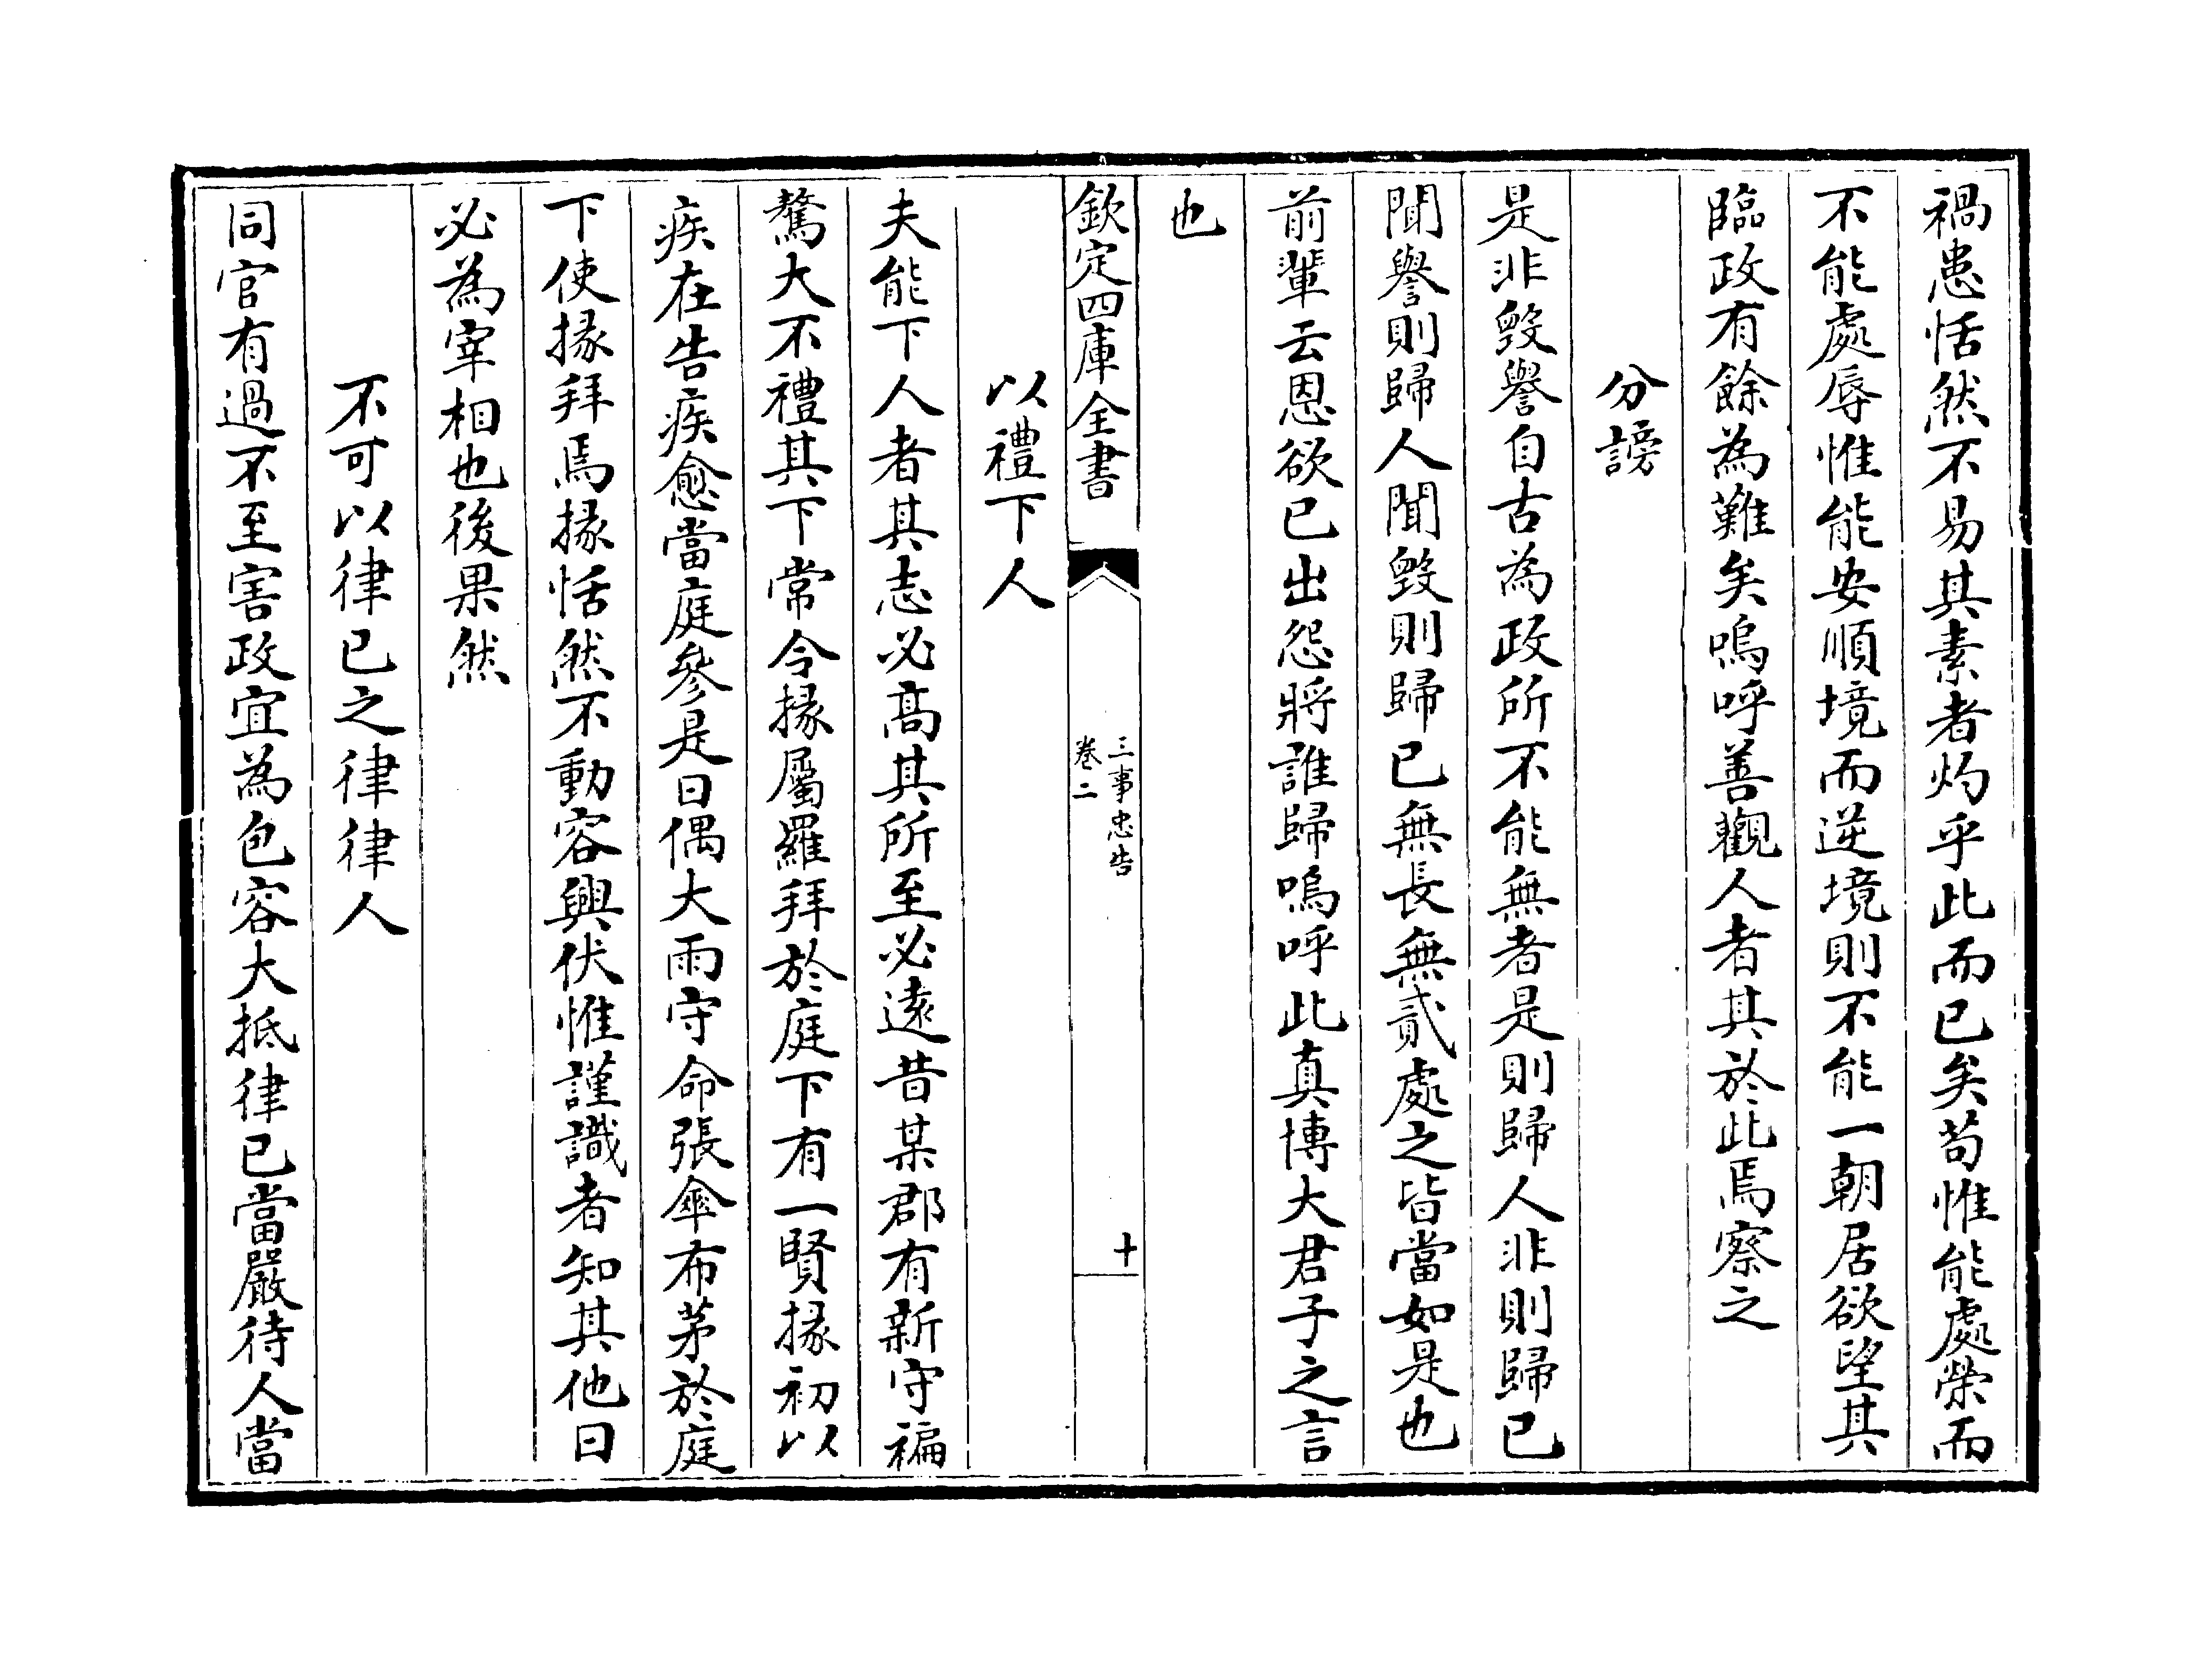 禍患恬然不易其素者灼乎此而已矣苟惟能處榮而
不能處辱惟能安順境而逆境則不能一朝居欲望其
臨政有餘為難矣嗚呼善觀人者其於此焉察之
分謗
是非毀譽自古為政所不能無者是則歸人非則歸已
聞譽則歸人聞毀則歸已無長無貳處之皆當如是也
前輩云恩欲已出怨將誰歸嗚呼此真博大君子之言
也
欽定四庫全書
三事忠告
卷二
十
以禮下人
夫能下人者其志必高其所至必遠昔某郡有新守褊
驁大不禮其下常令掾屬羅拜於庭下有一賢掾初以
疾在告疾愈當庭參是日偶大雨守命張傘布茅於庭
下使掾拜焉掾恬然不動容興伏惟謹識者知其他日
必為宰相也後果然
不可以律已之律律人
同官有過不至害政宜為包容大抵律已當嚴待人當